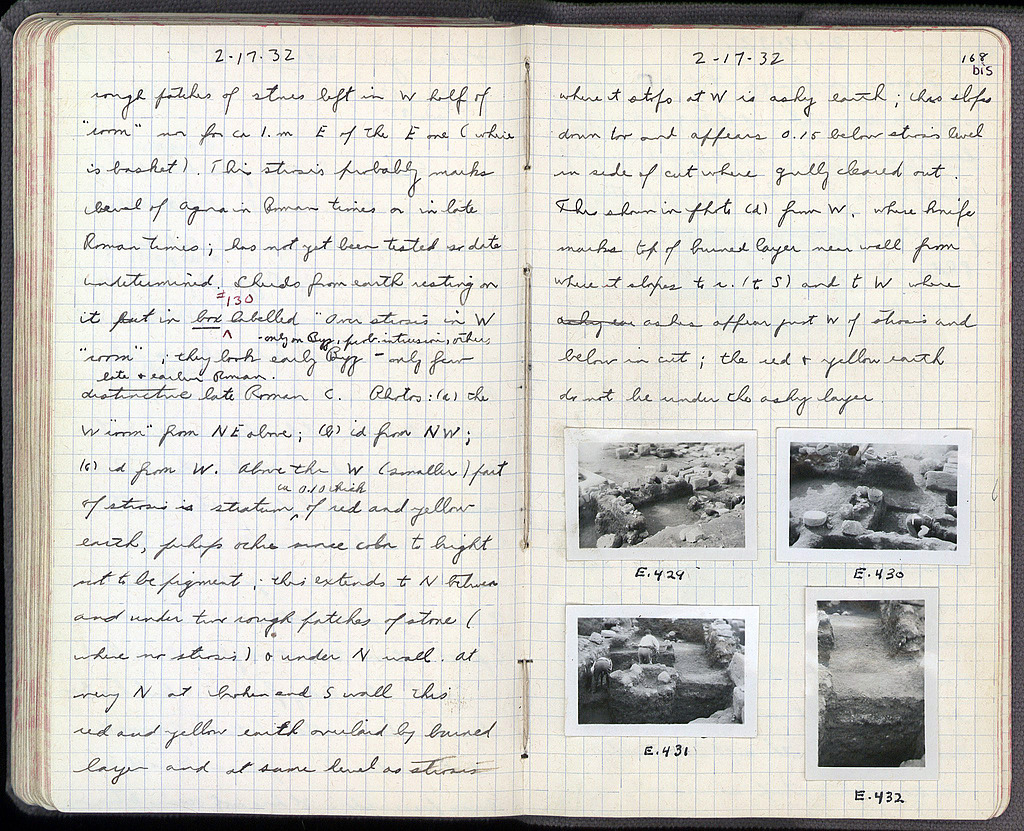 2-17-32
rough patches of stones left in W half of
"room" nor for ca 1. m E of the E one (where
is basket). This strosis probably marks
level of agora in Roman times or in late
Roman times; has not yet been tested so date
undetermined. Sherds from earth resting on
#130
it put in box labelled "Over strosis in W
- only on Byz, prob. intrusion, others
"room"; they look early Byz - only few
late & earlier Roman.
distinctive late Roman C. Photos: (a) the
W "room" from NE above; (b) id from NW;
(c) id from W. Above the W (smaller) part
ca 0.10 thick
of strosis is stratum of red and yellow
earth, perhaps ochre since color too bright
not to be pigment; this extends to N between
and under two rough patches of stone (
where no strosis) & under N wall. At
very N at broken end S wall this
red and yellow earth overlaid by burned
layer and at same level as strosis
2-17-32
168
bis
where it stops at W is ashy earth; this slopes
down too and appears 0.15 below strosis level
in side of cut where gully cleared out.
This shown in photo (d) from W, where knife
marks top of burned layer near wall from
where it slopes to r. (to S) and to W where
ashes appear just W of strosis and
below in cut; the red & yellow earth
do not lie under the ashy layer.
E.429
E.430
E.431
E.432